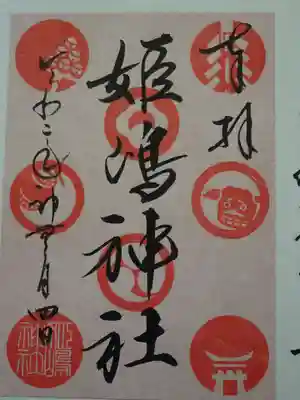 奉拝
姫嶋神社
令和二年神無月四日
姫嶋神社